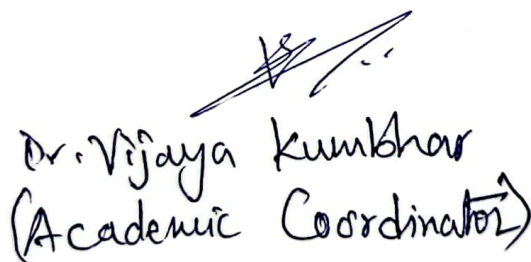 Dr. Vijaya Kumbhar
(Academic Coordinator)